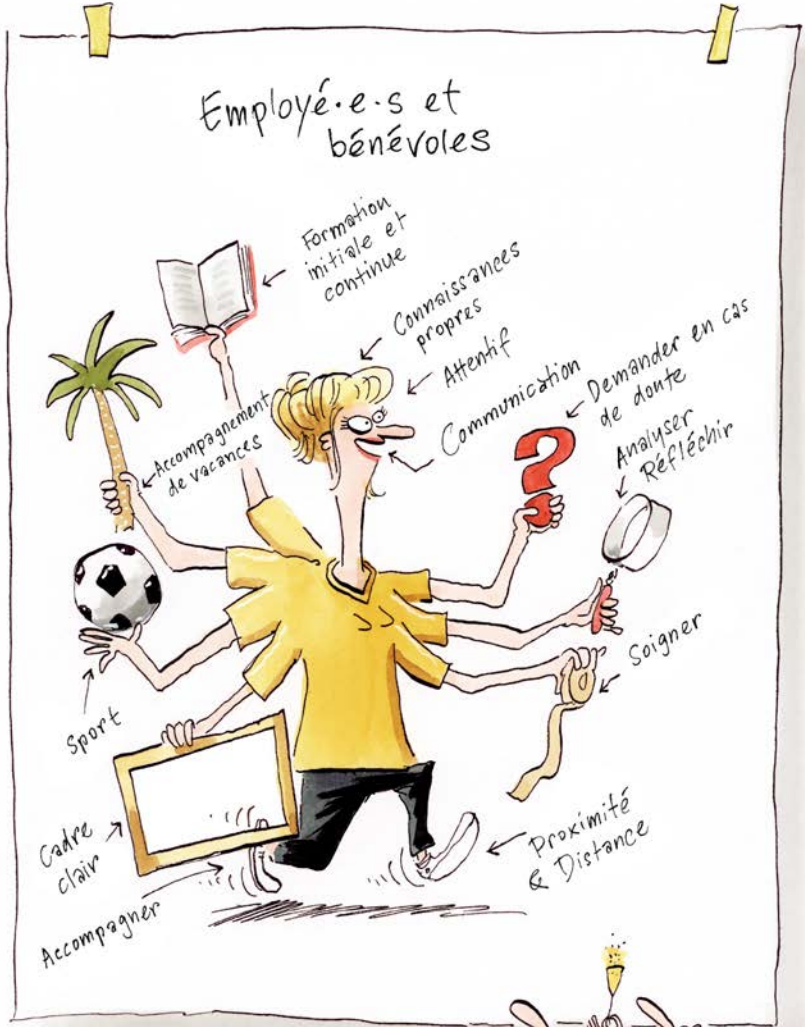 Employé·e·s et
bénévoles
Formation
initiale et
continue
Connaissances
propres
Attentif
Communication
Demander en cas
de doute
Analyser
Réfléchir
Accompagnement
de vacances
Soigner
Sport
Cadre
clair
Accompagner
Proximité
& Distance